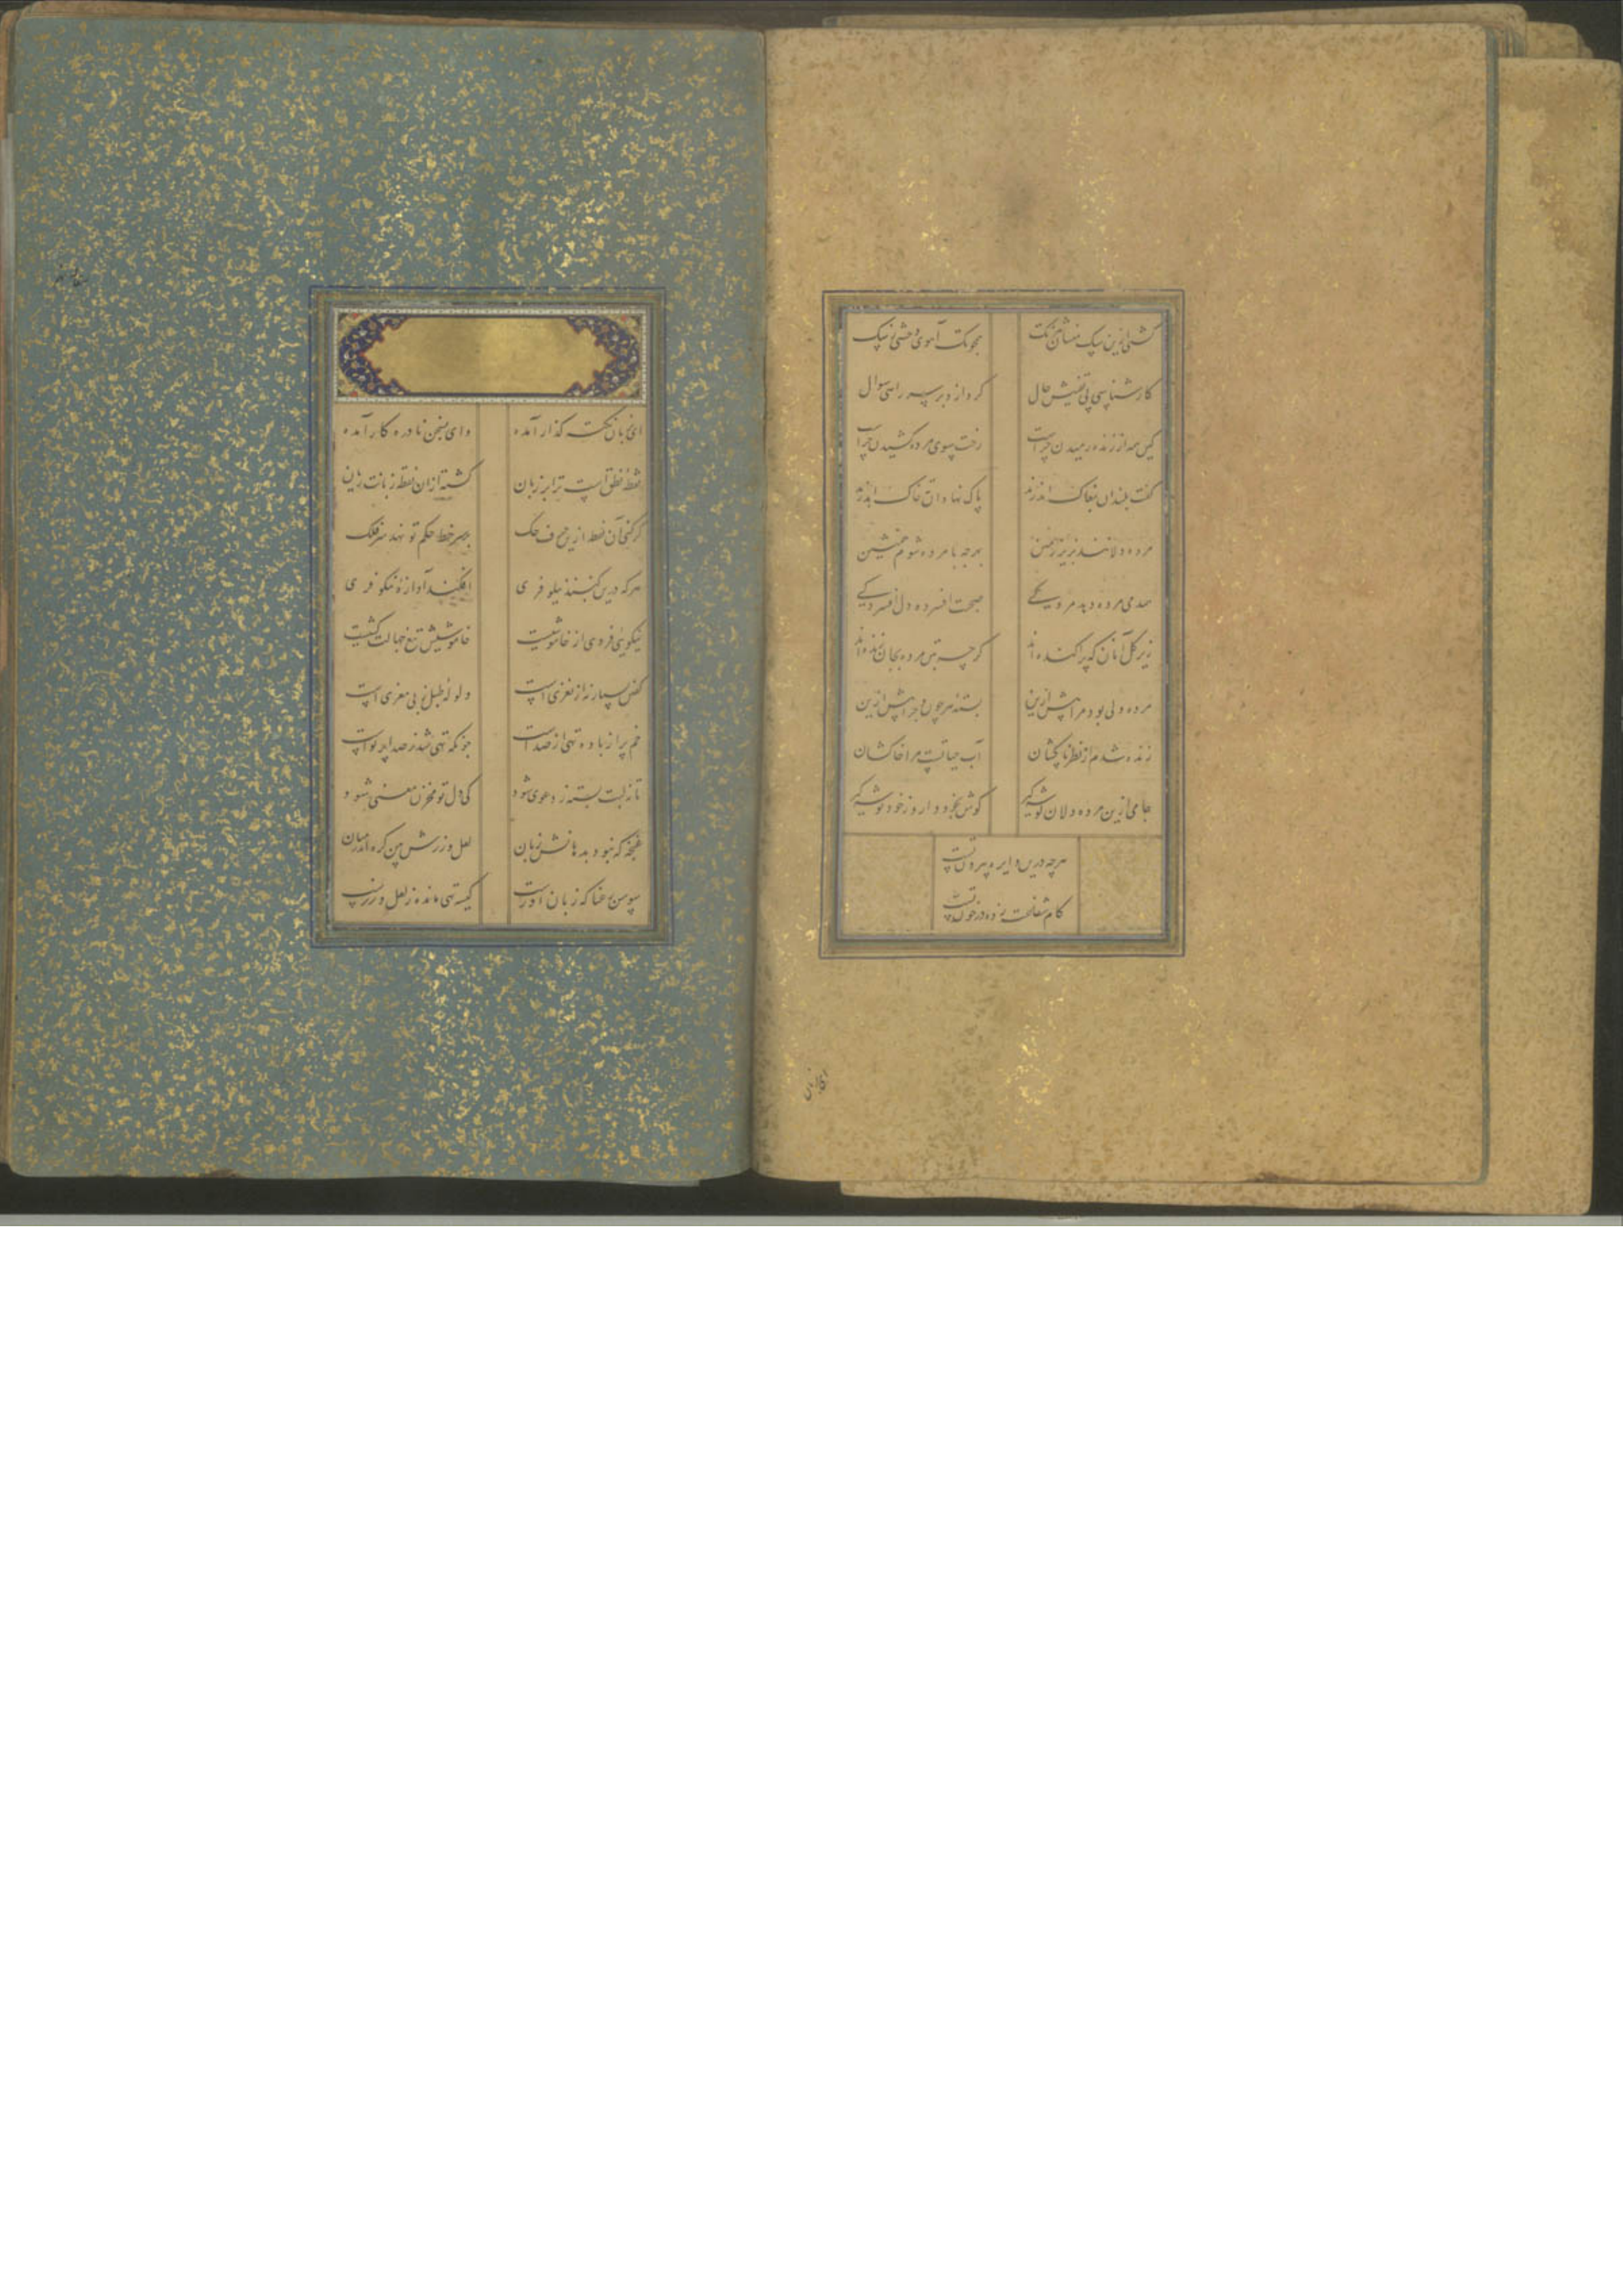 گشتی ازین سگ منشان تیزتک همچو تک آهوی وحشی ز سگ
کارشناسی پی تفتیش حال کرد ازو بر سر راهی سوال
کین همه از زنده رمیدن چراست رخت سوی مرده کشیدن چراست
گفت بلندان بمغاک اندرند پاک نهادان ته خاک اندرند
مرده دلانند زمین بهر چه با مرده شوم همنشین
همدمی مرده دهد مردگی صحبت افسرده دل افسردگی
زیر گل آنان که پراکنده‌اند گرچه بتن مرده بجان زنده‌اند
مرده دلی بود مرا پیش ازین بسته هر چون و چرا پیش ازین
زنده شدم از نظر پاکشان آب حیاتست مرا خاکشان
جامی ازین مرده دلان گوشه گیر گوش بخود دار و ز خود توشه گیر
هرچه درین دایره بیرون تست
کام زده در خون تست
ای بزبان
ای بزبان نکته گذار آمده وای بسخن نادره کار آمده
نقطه نطق است ترا بر زبان گشته ازان نقطه زبانت زیان
گر کنی آن نقطه ازین حرف حک بر سر خط حکم تو نهد سر فلک
هرکه درین گنبد نیلوفری افکند آوازه نیکوفری
نیکویی فر وی از خامشیست خامشیش تیغ جهالت کشیست
گفتن بسیار نه از نغزی است ولوله طبل ز بی مغزی است
خم پر از باده تهی از صداست چونکه تهی شد ز صدا پر نواست
تا ز لبت بسته ز دعوی شود کی دل تو مخزن معنی شود
غنچه که نبود بدهانش زبان لعل و زرش بین گره اندر میان
سوسن رعنا که زبان آورست کیسه تهی مانده ز لعل و زرست